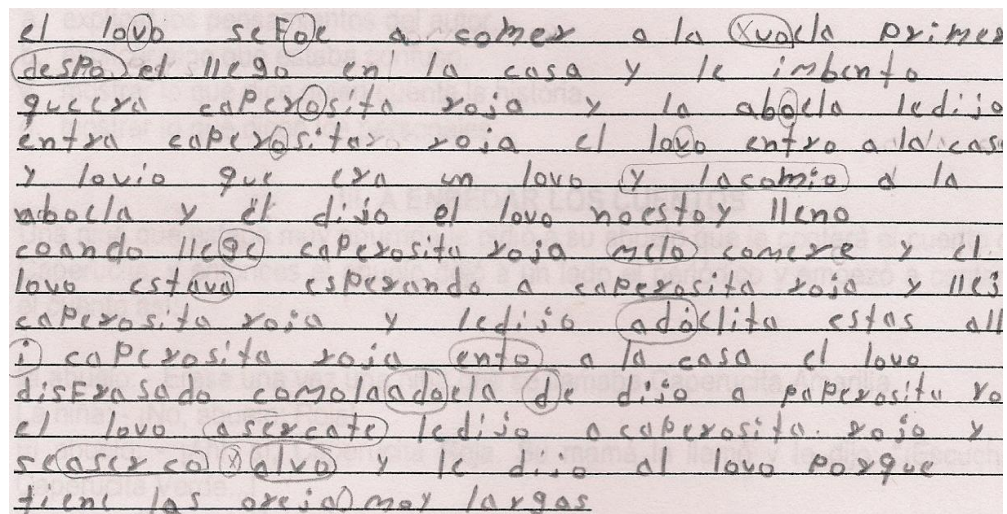 el lovo seFoe a comer a la Xuocla primer
despo.s el llego en la casa y le imbento
queera caperosita roja y la aboela ledijo
entra caperositar roja el lovo entro a la casa
y lovio que era un lovo y lacomio a la
aboela y él dijo el lovo noestoy lleno
coando llege caperosita roja melo comere y el
lovo estava esperando a caperosita roja y llej
caperosita roja y ledijo adoelita estas all
i caperosita roja ento a la casa el lovo
disFrasado comolaadoela de dijo a paperosita ro
el lovo asercate ledijo acaperosita roja y
seaserco Xalvo y le dijo al lovo porque
tiene las oreja moy largas